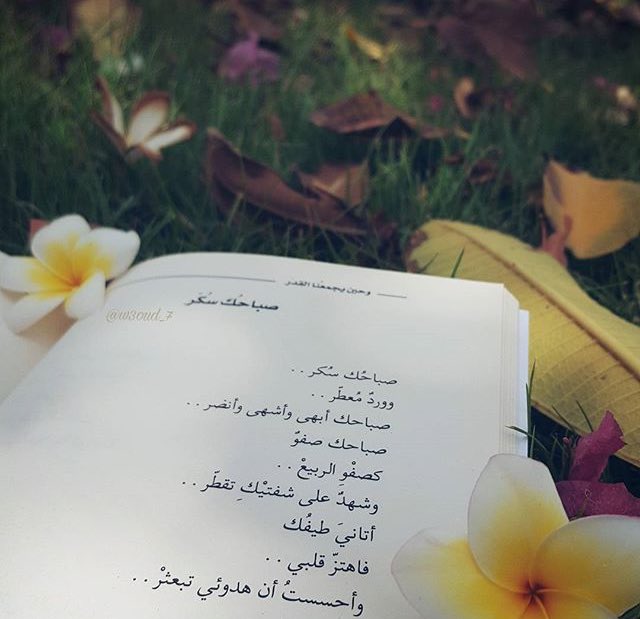 وحين يجمعنا القدر
صباحك سُكَر
@w3oud_7
صباحُك سُكر ..
ووردٌ مُعطَر ..
صباحك أبهى وأشهى وأنضر ..
صباحك صفوٌ
كصفْوِ الربيعْ ..
وشهدٌ على شفتيْك ِتقطَر ..
أتانيَ طيفُك
فاهتزّ قلبي ..
وأحسستُ أن هدوئي تبعثرْ ..